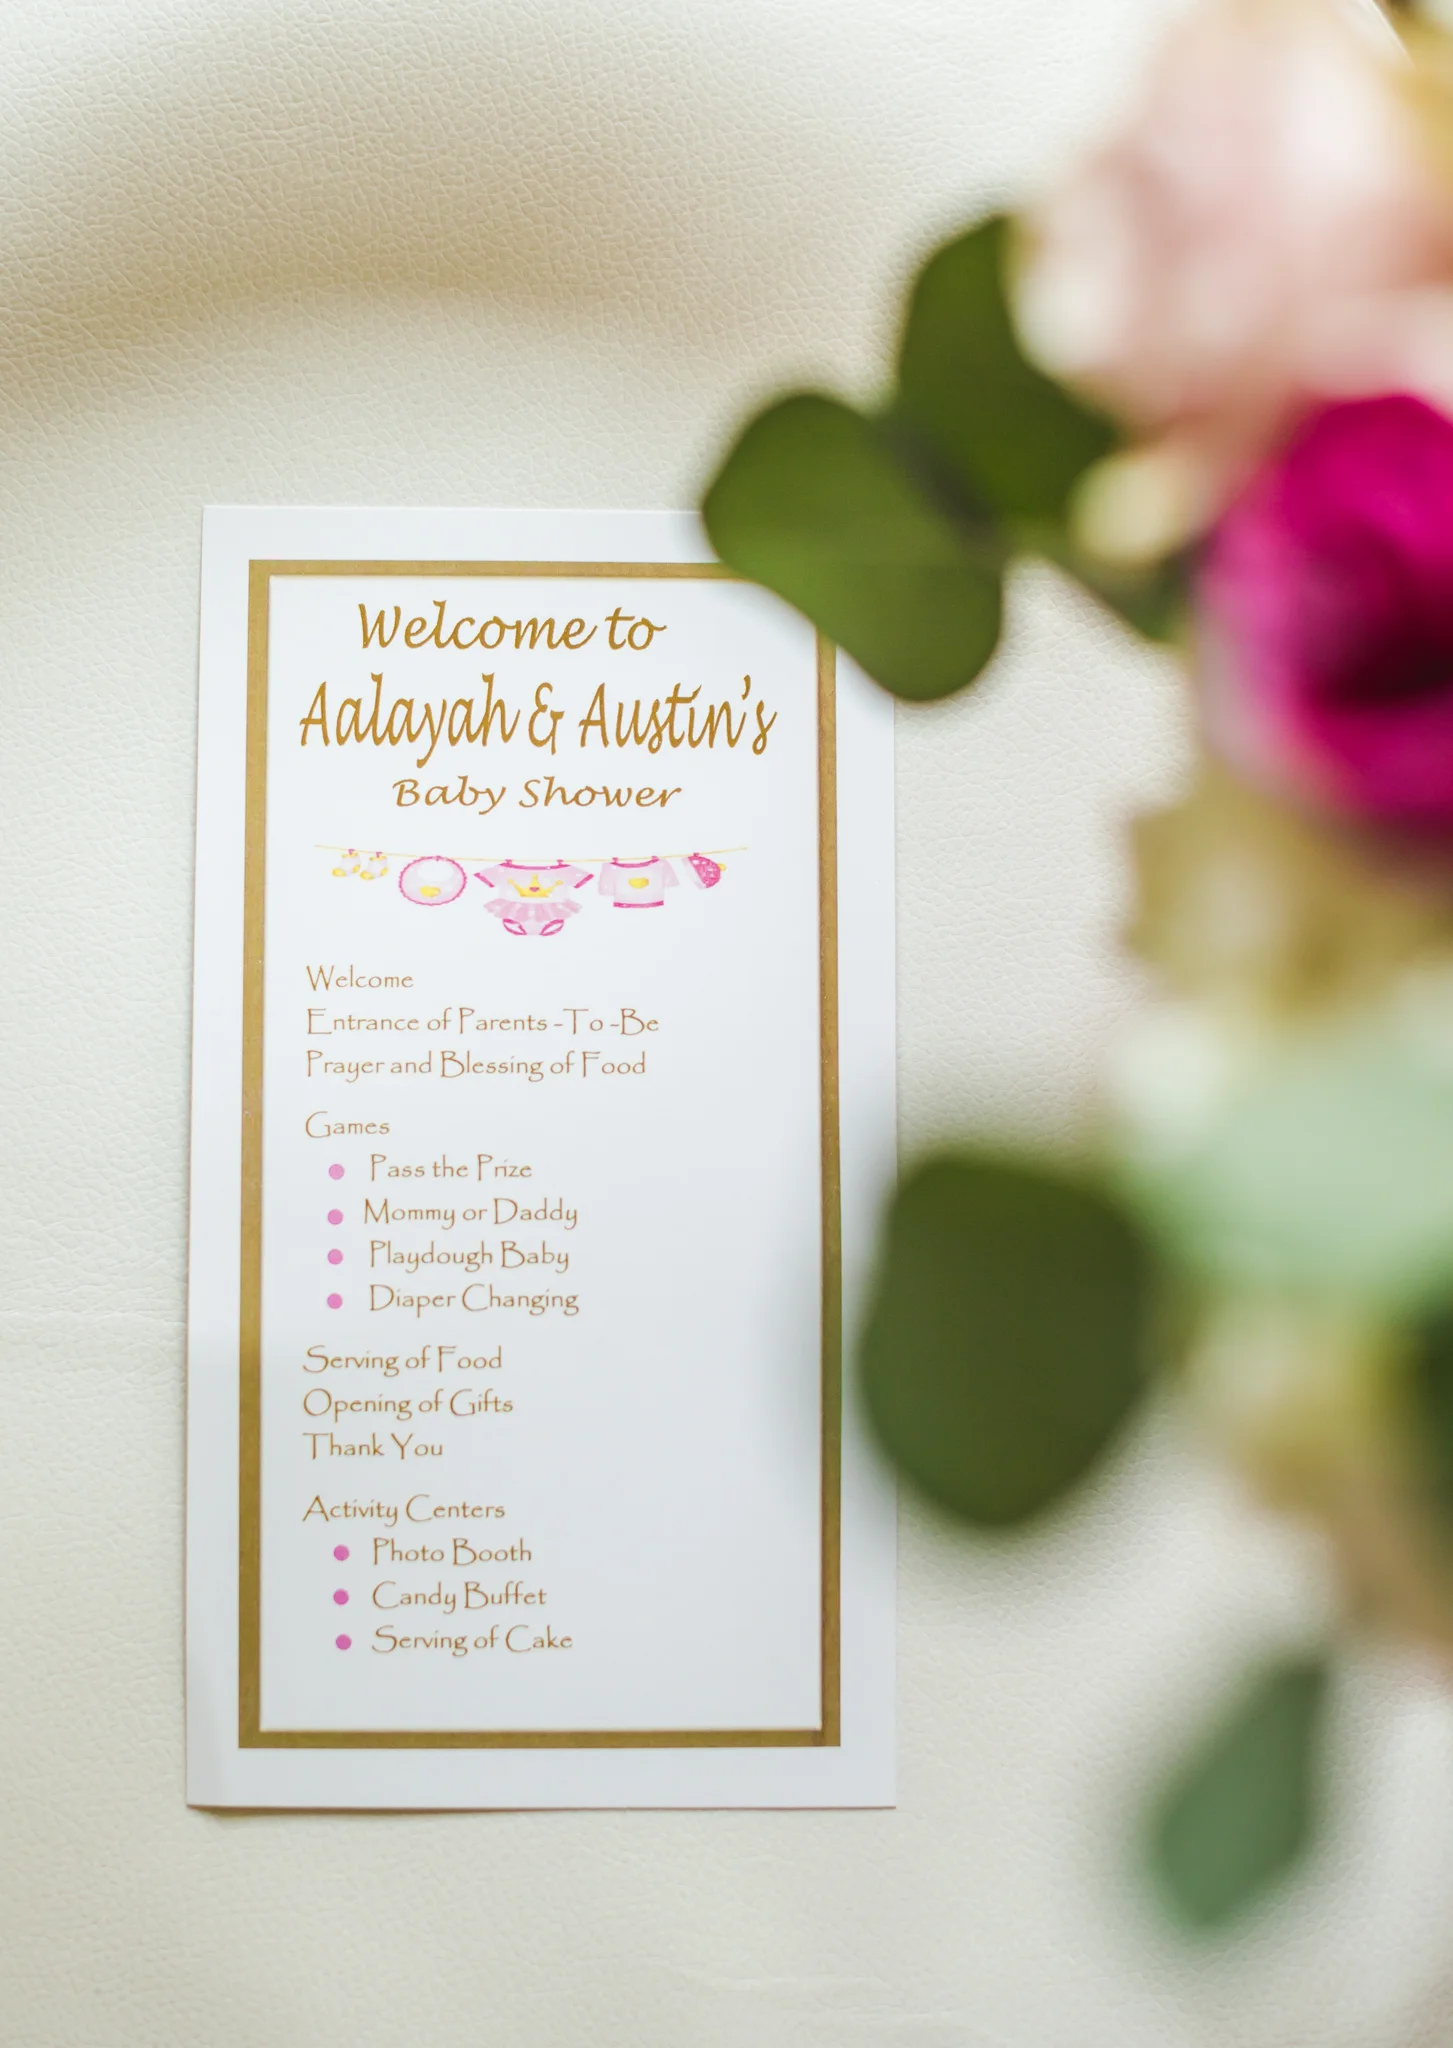 Welcome to
Aalayah & Austin's
Baby Shower
Welcome
Entrance of Parents -To -Be
Prayer and Blessing of Food
Games
Pass the Prize
Mommy or Daddy
Playdough Baby
Diaper Changing
Serving of Food
Opening of Gifts
Thank You
Activity Centers
Photo Booth
Candy Buffet
Serving of Cake